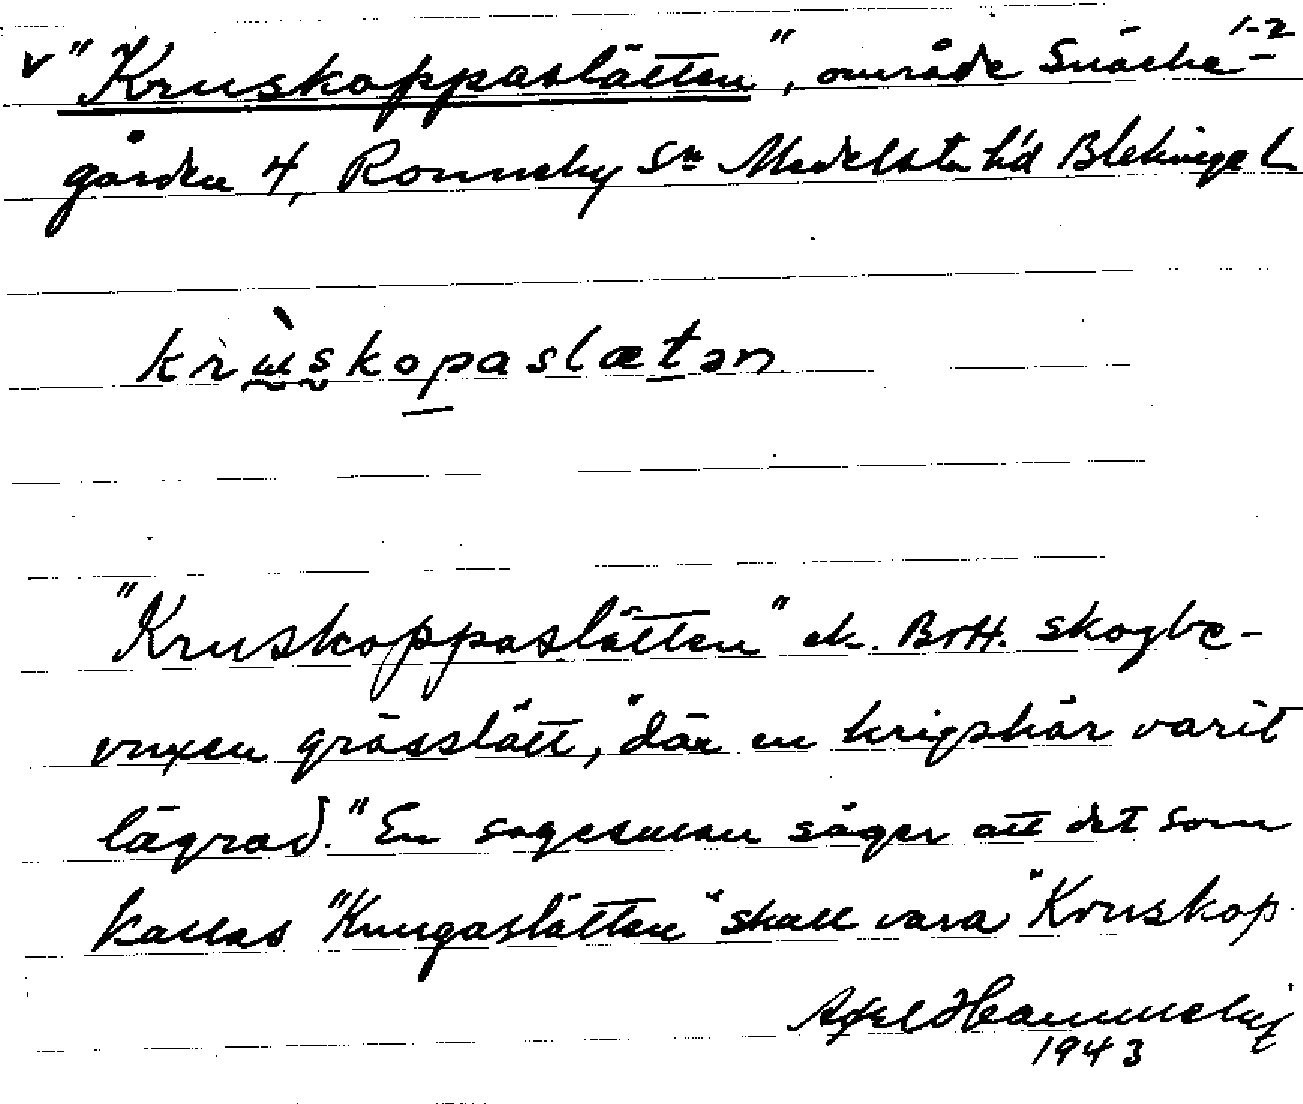 1-2
v "Kruskoppaslätten", område Snäcke-
gården 4, Ronneby Sn Medelsta hd Blekinge l
kruskopaslætən
"Kruskoppaslätten" ek. Brtt. skogbe-
vuxen grässlätt, "där en krigshär varit
lägrad." En sagesman säger att det som
kallas "Kungaslätten" skall vara "Kruskop-
Axel Hammeby
1943